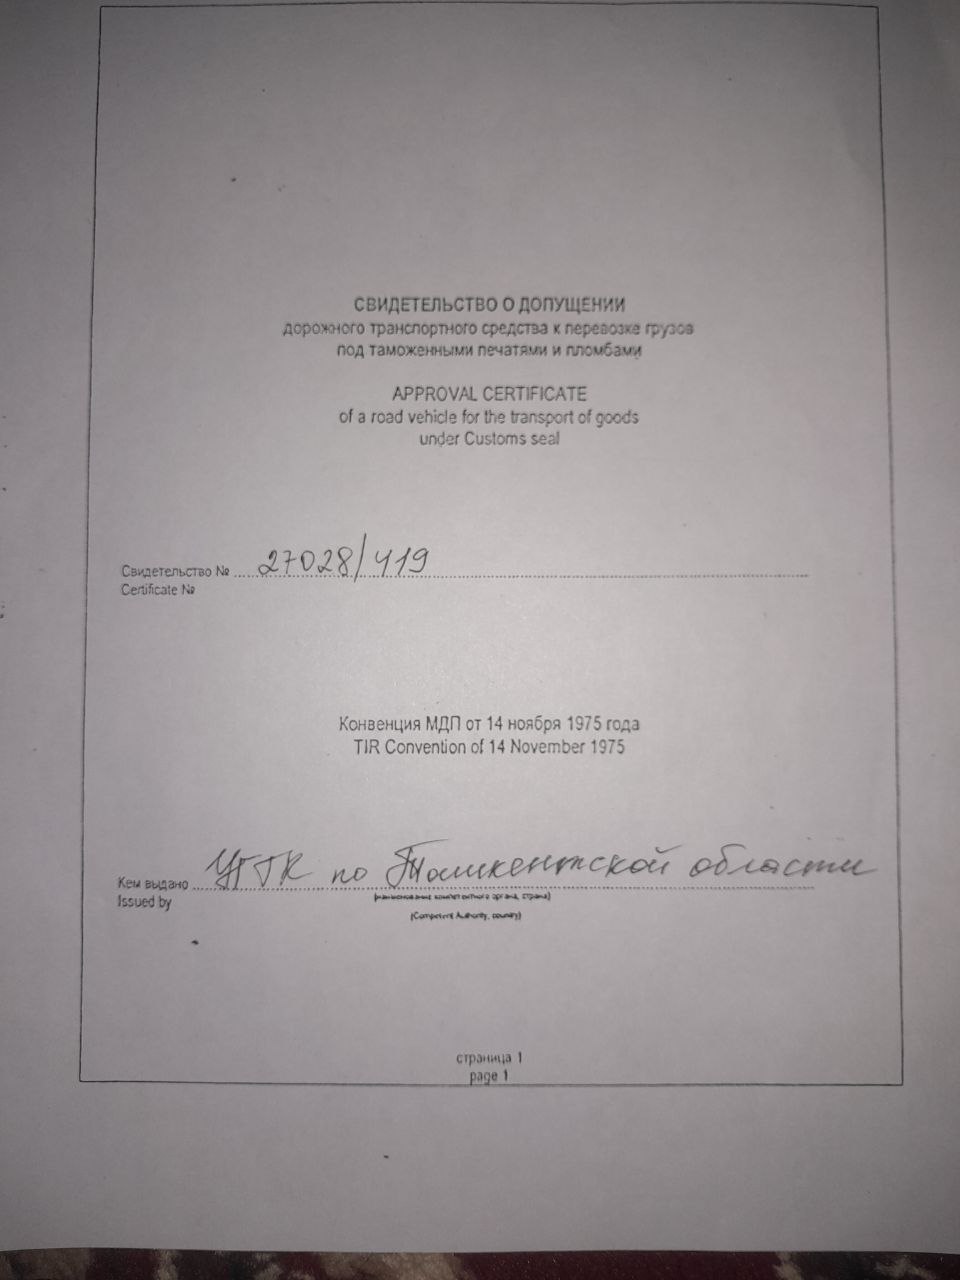 СВИДЕТЕЛЬСТВО О ДОПУЩЕНИИ
дорожного транспортного средства к перевозке грузов
под таможенными печатями и пломбами
APPROVAL CERTIFICATE
of a road vehicle for the transport of goods
under Customs seal
Свидетельство № 27028/419
Certificate №
Конвенция МДП от 14 ноября 1975 года
TIR Convention of 14 November 1975
Кем выдано УГТК по Ташкентской области
Issued by
(наименование компетентного органа, страна)
(Competent Authority, country)
страница 1
page 1